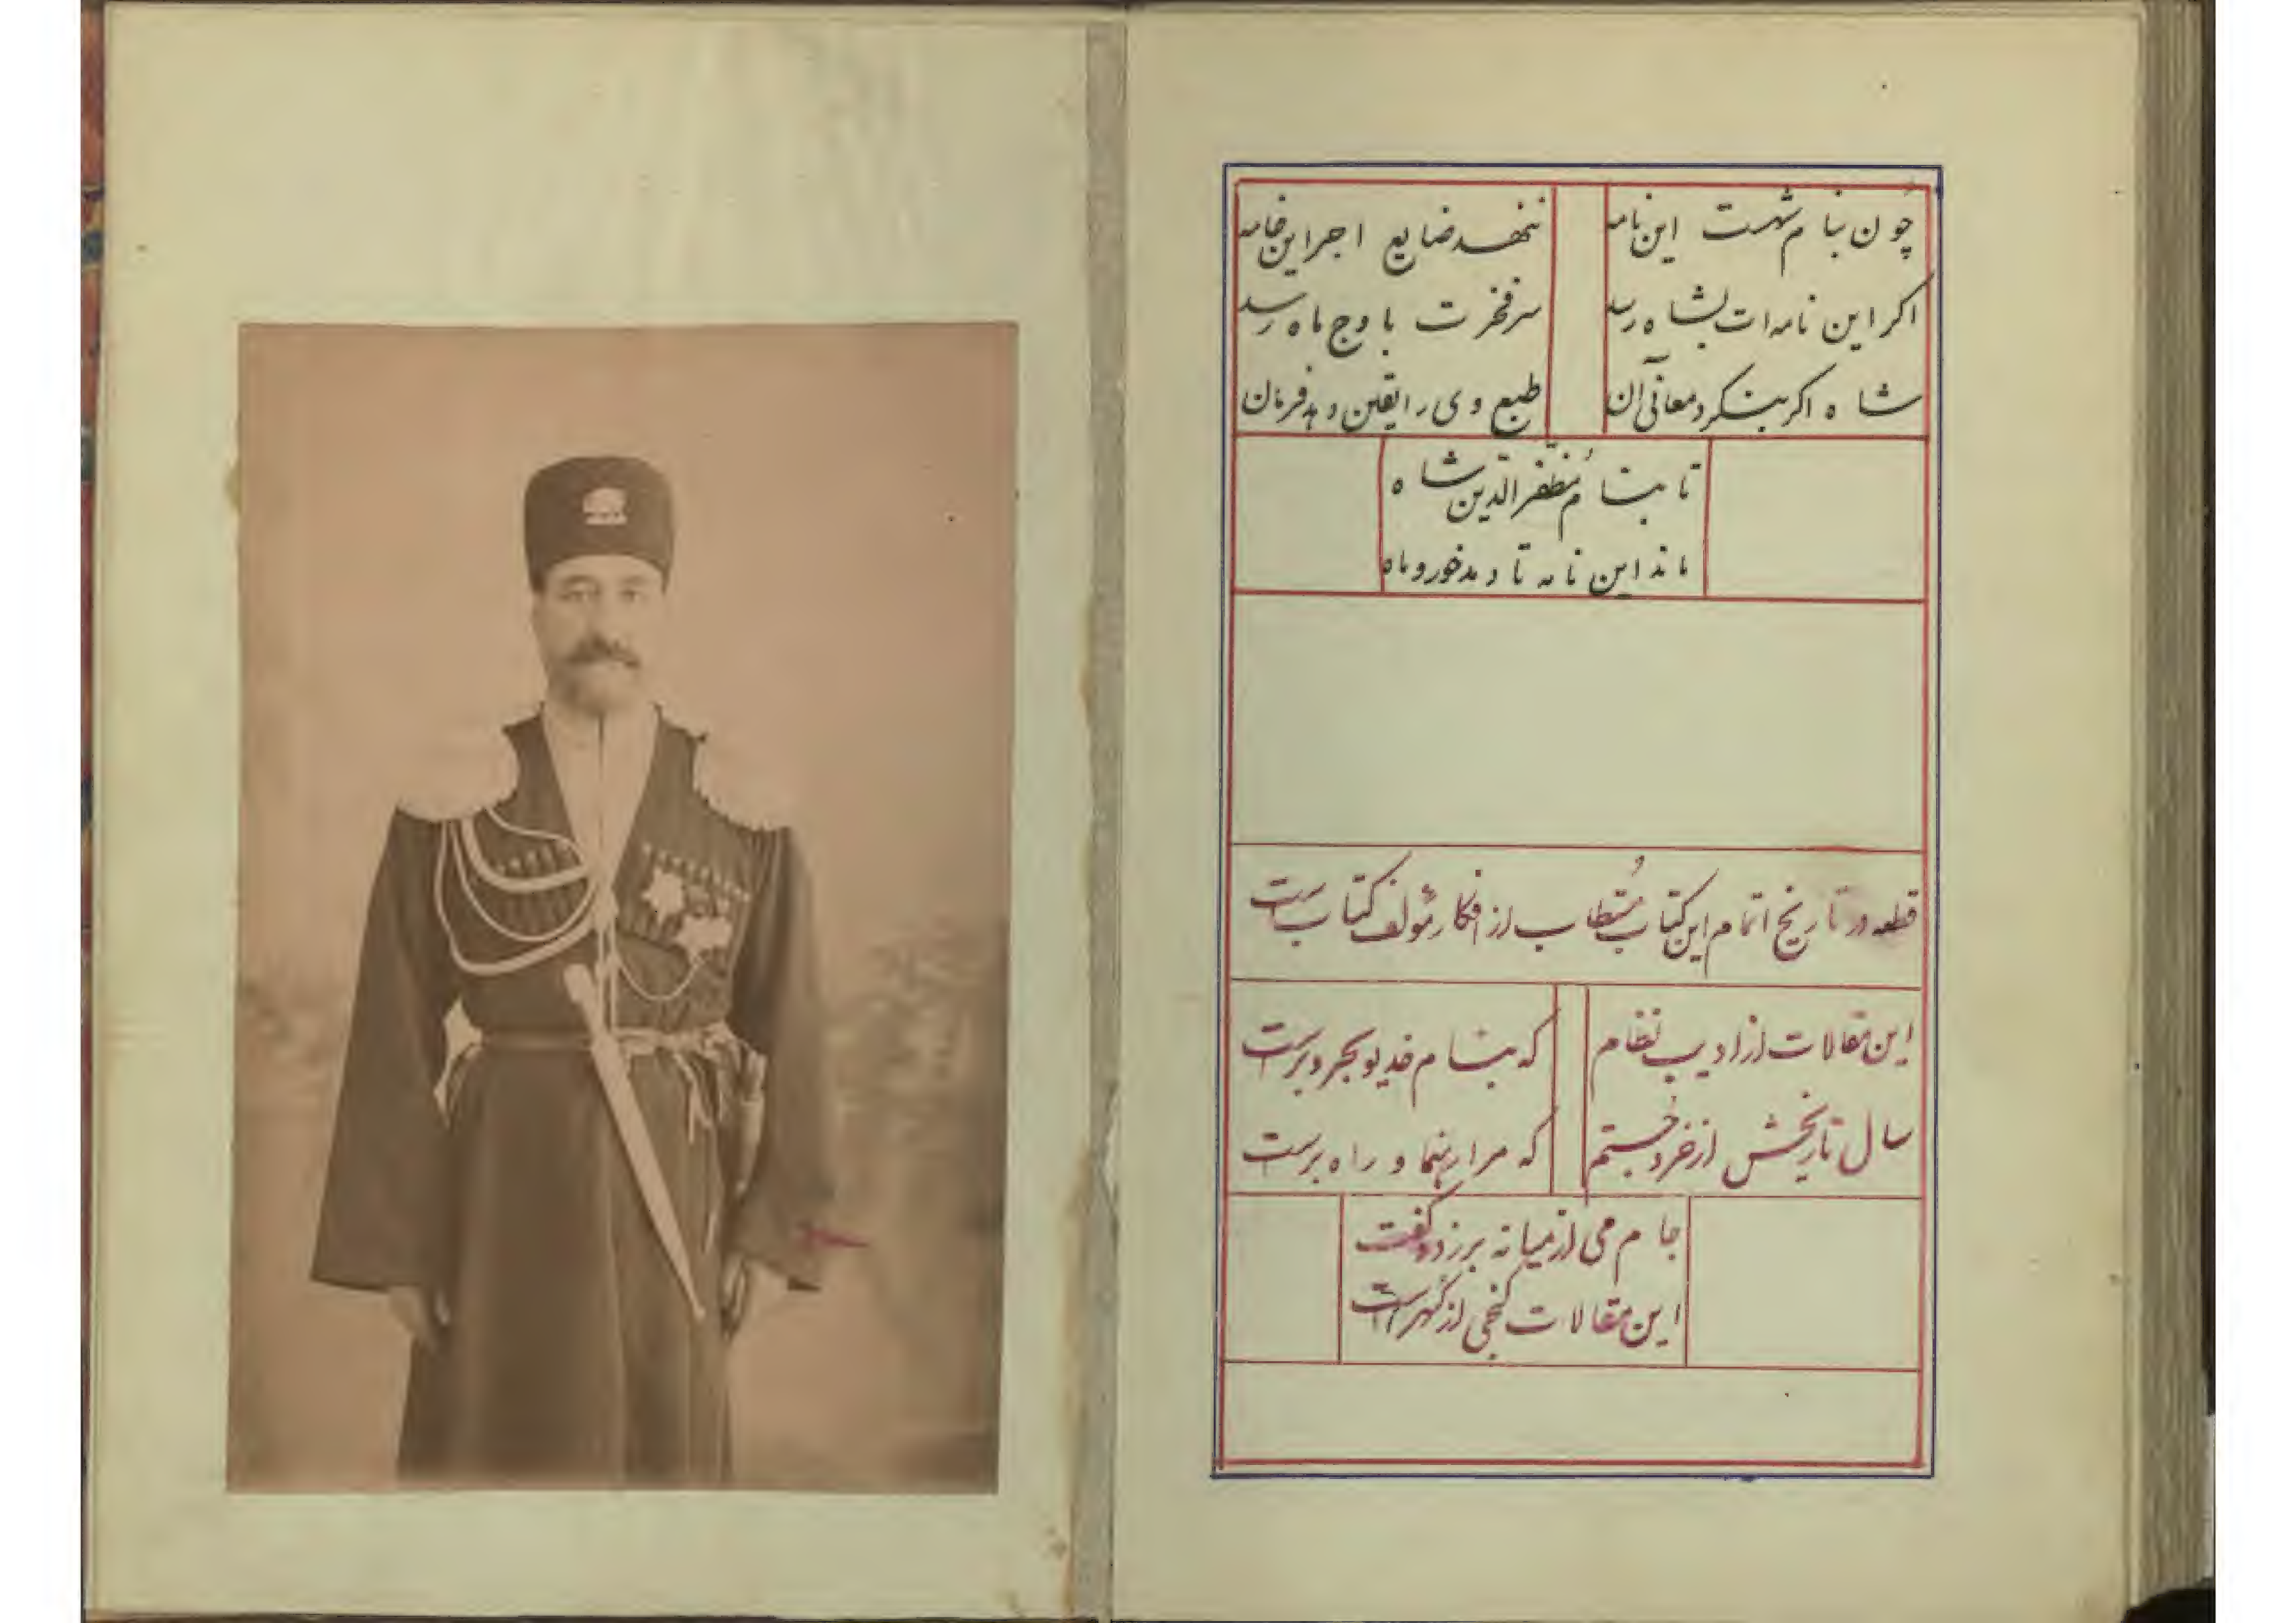 چون بنام شهست این نامه
ننهد ضایع اجر این خامه
اکر این نامه ات بشاه رسد
سرفخرت باوج ماه رسد
شاه اکر بنکرد معانی آن
طبع وی را یقین دهد فرمان
تا بنام مُظفّرالدّین شاه
ماند این نامه تا دمد خور و ماه
قطعه در تاریخ اتمام این کتاب مُستطاب از افکار مؤلف کتاب است
این مقالات از ادیب نظام
که بنام خدیو بحر و برست
سال تاریخش از خرد جُستم
که مرا رهنما و راه برست
جام می از میانه برزد و کفت
این مقالات کنجی از کُهر است